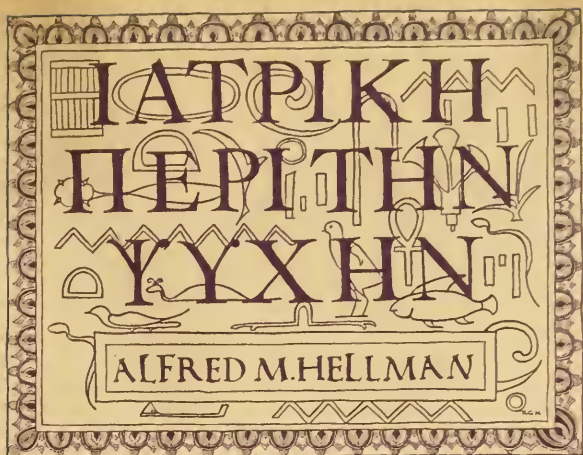 ΙΑΤΡΙΚΗ
ΠΕΡΙ ΤΗΝ
ΨΥΧΗΝ
ALFRED M. HELLMAN